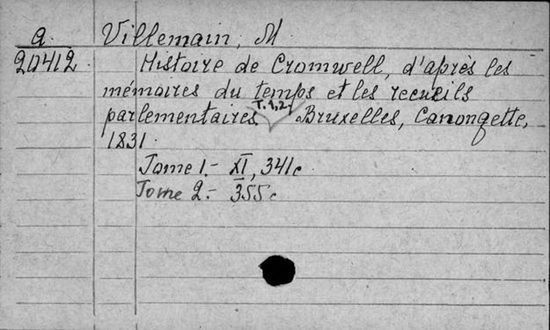 a Villemain, M
20412 Histoire de Cromwell, d'après les
mémoires du temps et les recueils
parlementaires T.1,2 Bruxelles, Canongette,
1831.
Tome 1.- XI, 341c
Tome 2.- 355c